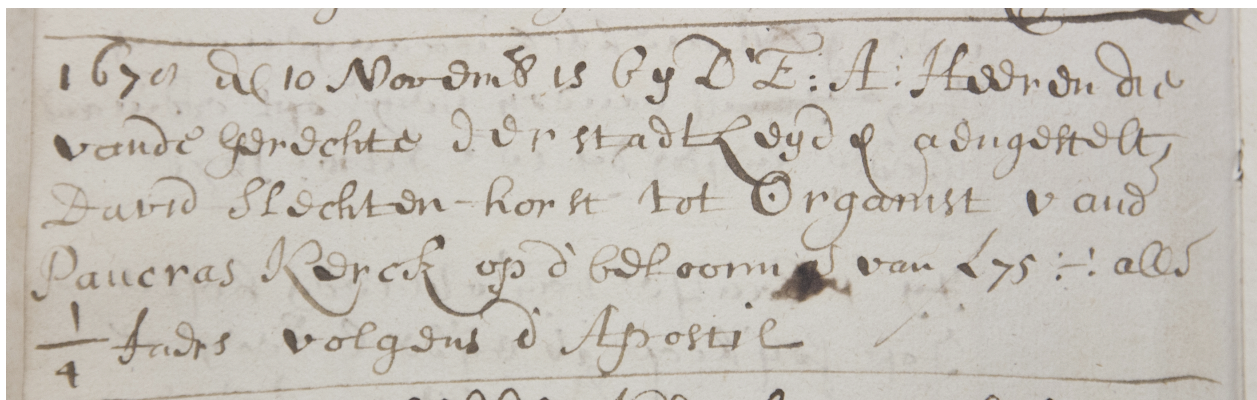 167 den 10 Novemb is by D'E: A: Heeren die
vande Gerechte der stadt Leyden aengestelt,
David Slechten-horst tot Organist vand
Pancras Kerck op d' belooning van £75 :-: alle
1/4 Jaers volgens d' Apostil